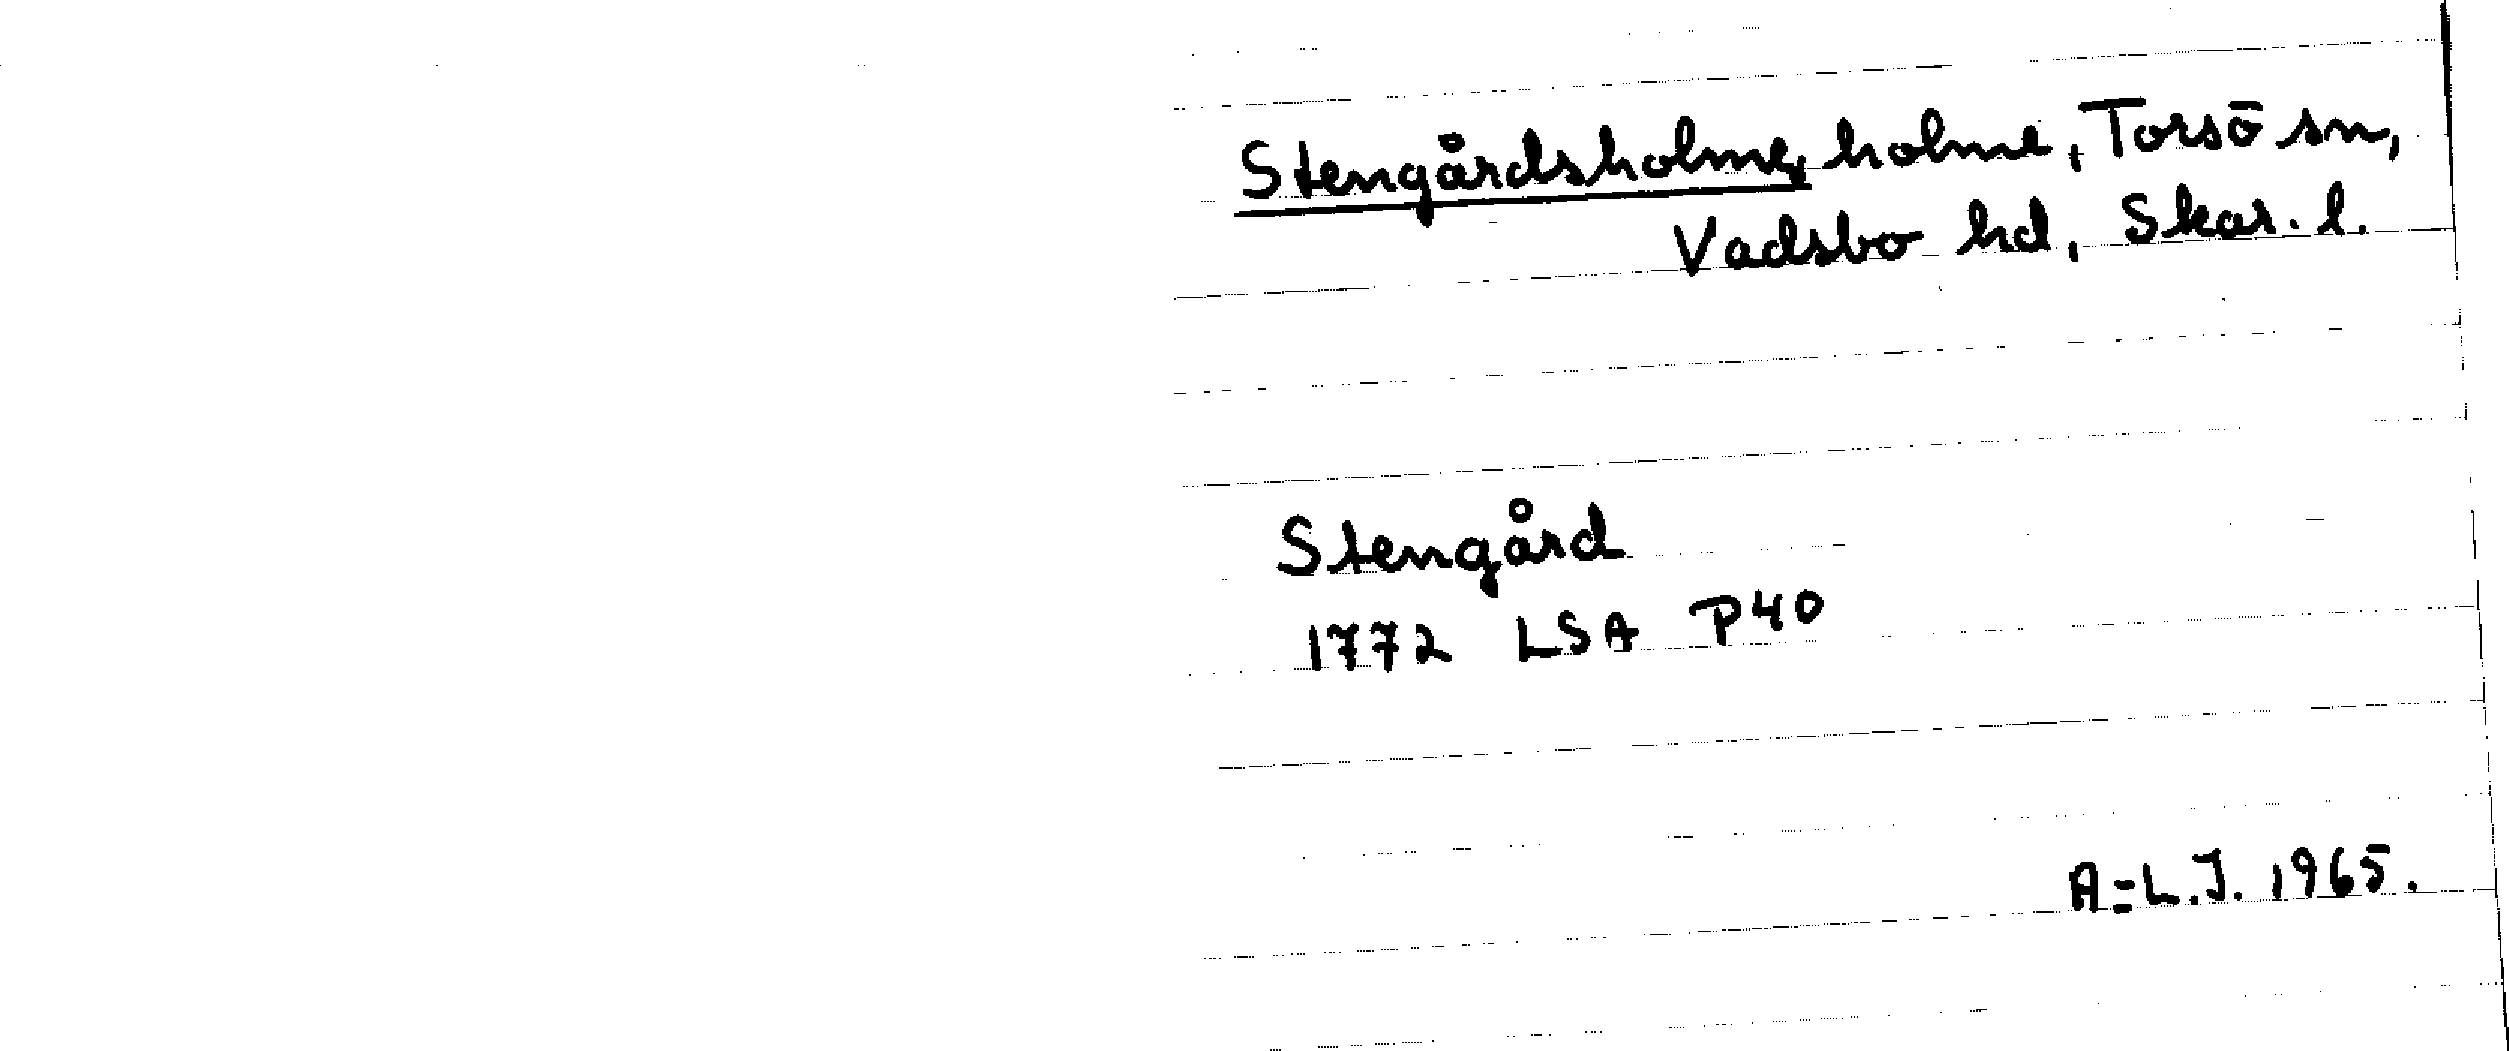 Stengårdsholme, holme, Torsö sn,
Vadsbo hd, Skar. l.
Stengård
1772 LSA P40
A=L.J. 1965.